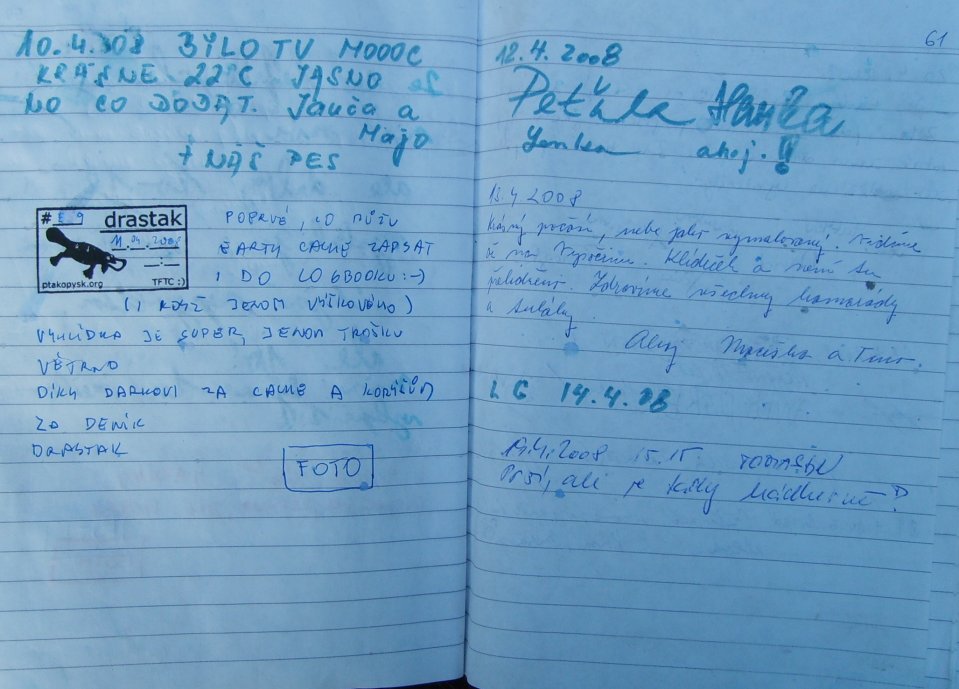 10.4.308 BÝLO TU MOOOC
KRÁSNE 22°C JASNO
NO CO DODAT. Janča a
Majo
+ NÁŠ PES
# E 9 drastak
11.04.2008
ptakopysk.org TFTC :)
POPRVÉ, CO MŮŽU
CACHE ZAPSAT
I DO LOGBOOKU :-)
(I KDYŽ JENOM VÝŠKOVÉHO)
VYHLÍDKA JE SUPER, JENOM TROŠKU
VĚTRNO
DÍKY DARKOVI ZA CACHE A
ZA DENÍK
DRASTAK
FOTO
61
12.4.2008
Peťula Hanka
Lenka ahoj.!!
13.4 2008
Krásný počasí, nebe jako vymalovaný. Vidíme
Klídeček a není tu
přelidněno. Zdravíme všechny kamarády
a
Ahoj a
LG 14.4.08
19.4.2008 15.15
Prší, ale je tady nádherně!